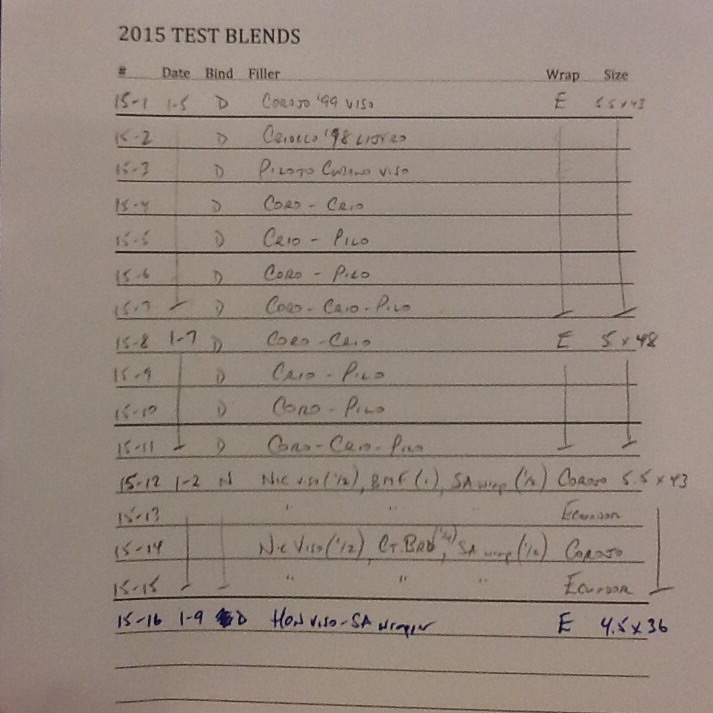 2015 TEST BLENDS
# Date Bind Filler Wrap Size
15-1 1-5 D COROJO '99 VISO E 5.5 x 43
15-2 D CRIOLLO '98 LIGERO
15-3 D PILOTO CUBANO VISO
15-4 D CORO - CRIO
15-5 D CRIO - PILO
15-6 D CORO - PILO
15-7 D CORO - CRIO - PILO
15-8 1-7 D CORO - CRIO E 5 x 48
15-9 D CRIO - PILO
15-10 D CORO - PILO
15-11 D CORO - CRIO - PILO
15-12 1-2 N NIC VISO (1/2), BMF (1), SA wrap (1/2) COROJO 5.5 x 43
15-13 " " " ECUADOR
15-14 NIC VISO (1/2), CT. BRD (1/4), SA wrap (1/2) COROJO
15-15 " " " ECUADOR
15-16 1-9 D HON VISO - SA wrapper E 4.5 x 36